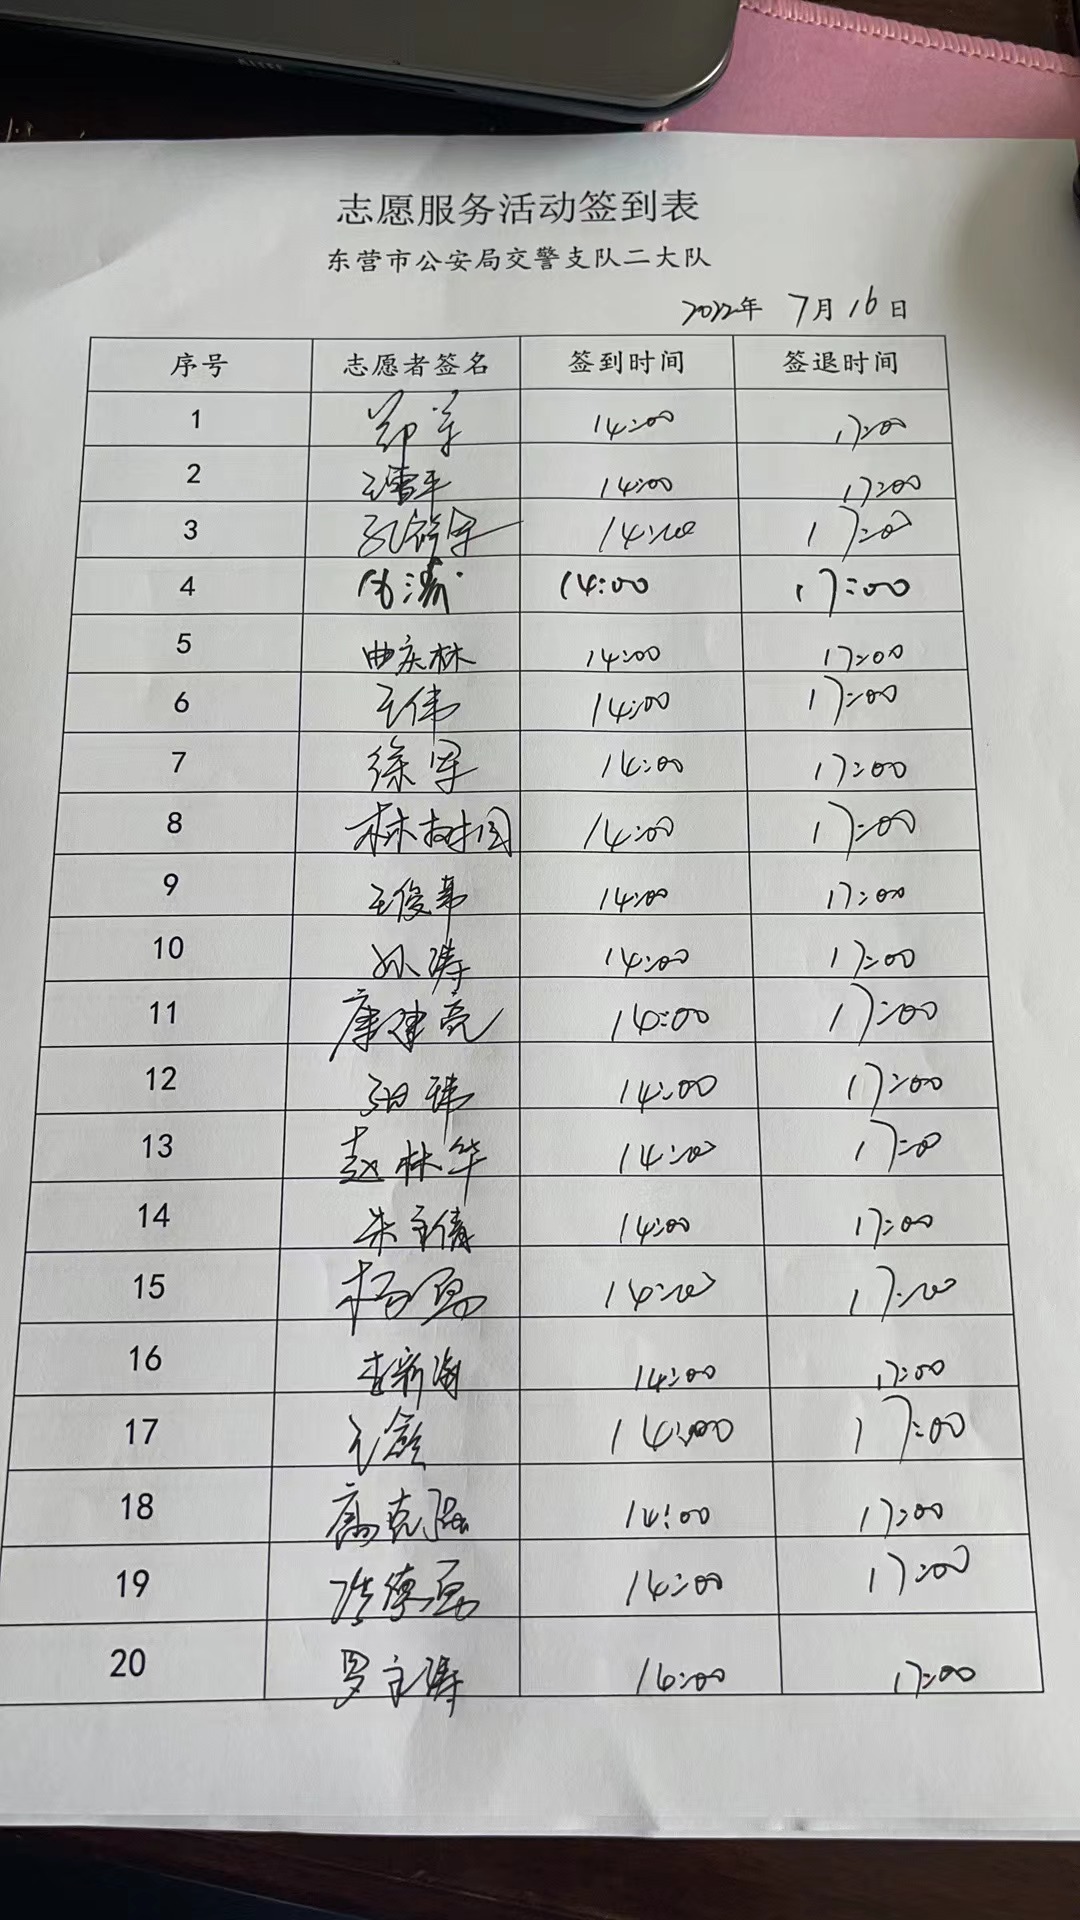 志愿服务活动签到表
东营市公安局交警支队二大队
2022年 7月16日
序号 志愿者签名 签到时间 签退时间
1 14:00 17:00
2 王雪平 14:00 17:00
3 14:00 17:00
4 14:00 17:00
5 曲庆林 14:00 17:00
6 王伟 14:00 17:00
7 徐军 14:00 17:00
8 林树国 14:00 17:00
9 王俊 14:00 17:00
10 孙涛 14:00 17:00
11 康建亮 14:00 17:00
12 14:00 17:00
13 赵林华 14:00 17:00
14 朱 倩 14:00 17:00
15 杨勇 14:00 17:00
16 李新海 14:00 17:00
17 王 14:00 17:00
18 高克强 14:00 17:00
19 14:00 17:00
20 罗 涛 14:00 17:00